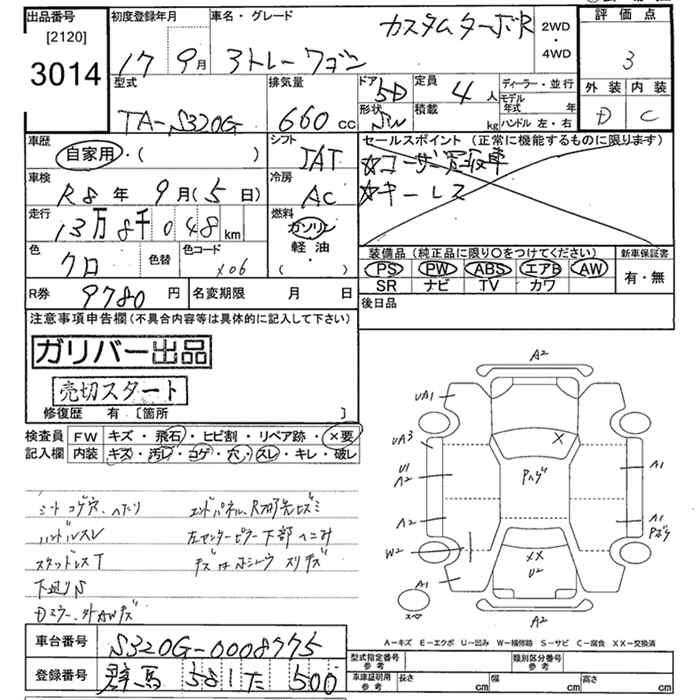 出品番号
[2120]
3014
初度登録年月
17 年 9月
車名・グレード
カスタムターボR
ストレーワゴン
2WD
・
4WD
評価点
3
外装 内装
D C
型式
TA-S320G
排気量
660 cc
ドア 5D
形状 SW
定員 4 人
積載 kg
ディーラー・並行
モデル年式 年
ハンドル 左・右
車歴
自家用・( )
車検
R8年9月(5日)
走行
13万8千048km
色
クロ
色替
色コード
X06
シフト
IAT
冷房
AC
燃料
ガソリン
軽油
・
( )
セールスポイント(正常に機能するものに限ります)
☆ユーザー買取車
☆キーレス
装備品(純正品に限り○をつけてください)
PS PW ABS エアB AW
SR ナビ TV カワ
新車保証書
有・無
後日品
R券 9780円
名変期限 月 日
注意事項申告欄(不具合内容等は具体的に記入して下さい)
ガリバー出品
売切スタート
修復歴 有 [箇所 ]
検査員 FW キズ・飛石・ヒビ割・リペア跡・×要
記入欄 内装 キズ・汚レ・コゲ・穴・スレ・キレ・破レ
シートコゲ穴、ヘタリ
ハンドルスレ
スタッドレスT
下廻りS
Dミラー、外AWキズ
エンドパネル、R
左センターピラー下部ヘこみ
A2
UA1
UA3
U1
A2
A2
W2
A1
スペア
X
Pハゲ
XX
U2
A1
A1
Pボケ
A1
A2
A-キズ E-エクボ U-凹み W-補修跡 S-サビ C-腐食 XX-交換済
車台番号 S320G-0008775
登録番号 群馬 581 た 500
型式指定番号 参考
類別区分番号 参考
車庫証明用 参考
長さ cm 幅 cm 高さ cm